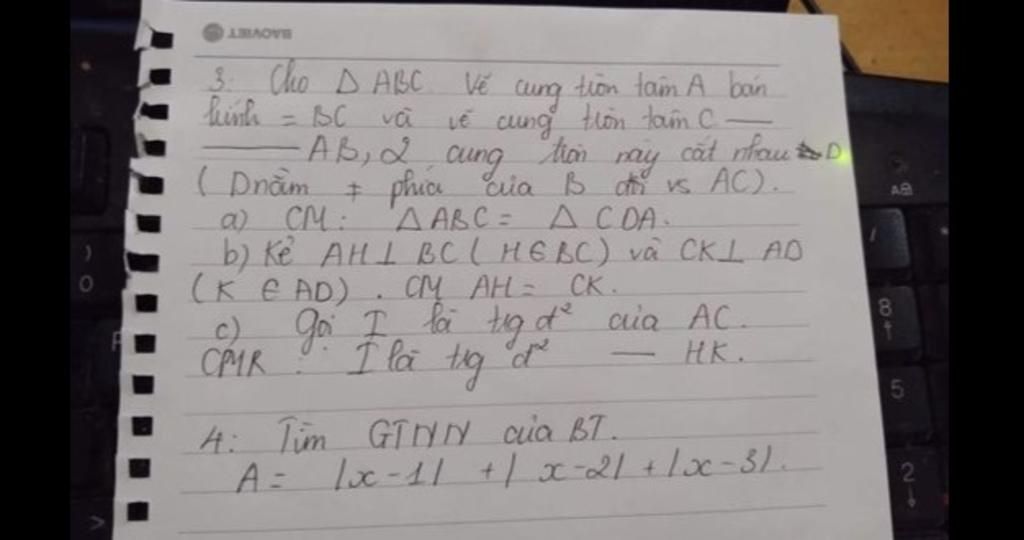 BAOVIET
3. Cho Δ ABC. Vẽ cung tròn tâm A bán
kính = BC và vẽ cung tròn tâm C —
—— AB, 2 cung tròn này cắt nhau D
( D nằm ≠ phía của B đối vs AC).
a) CM: Δ ABC = Δ CDA.
b) Kẻ AH ⊥ BC ( H ∈ BC) và CK ⊥ AD
(K ∈ AD). CM AH = CK.
c) Gọi I là trg đ² của AC.
CMR : I là trg đ² — HK.
4: Tìm GTNN của BT.
A = |x - 1| + | x - 2| + |x - 3|.
0
8
5
2
>